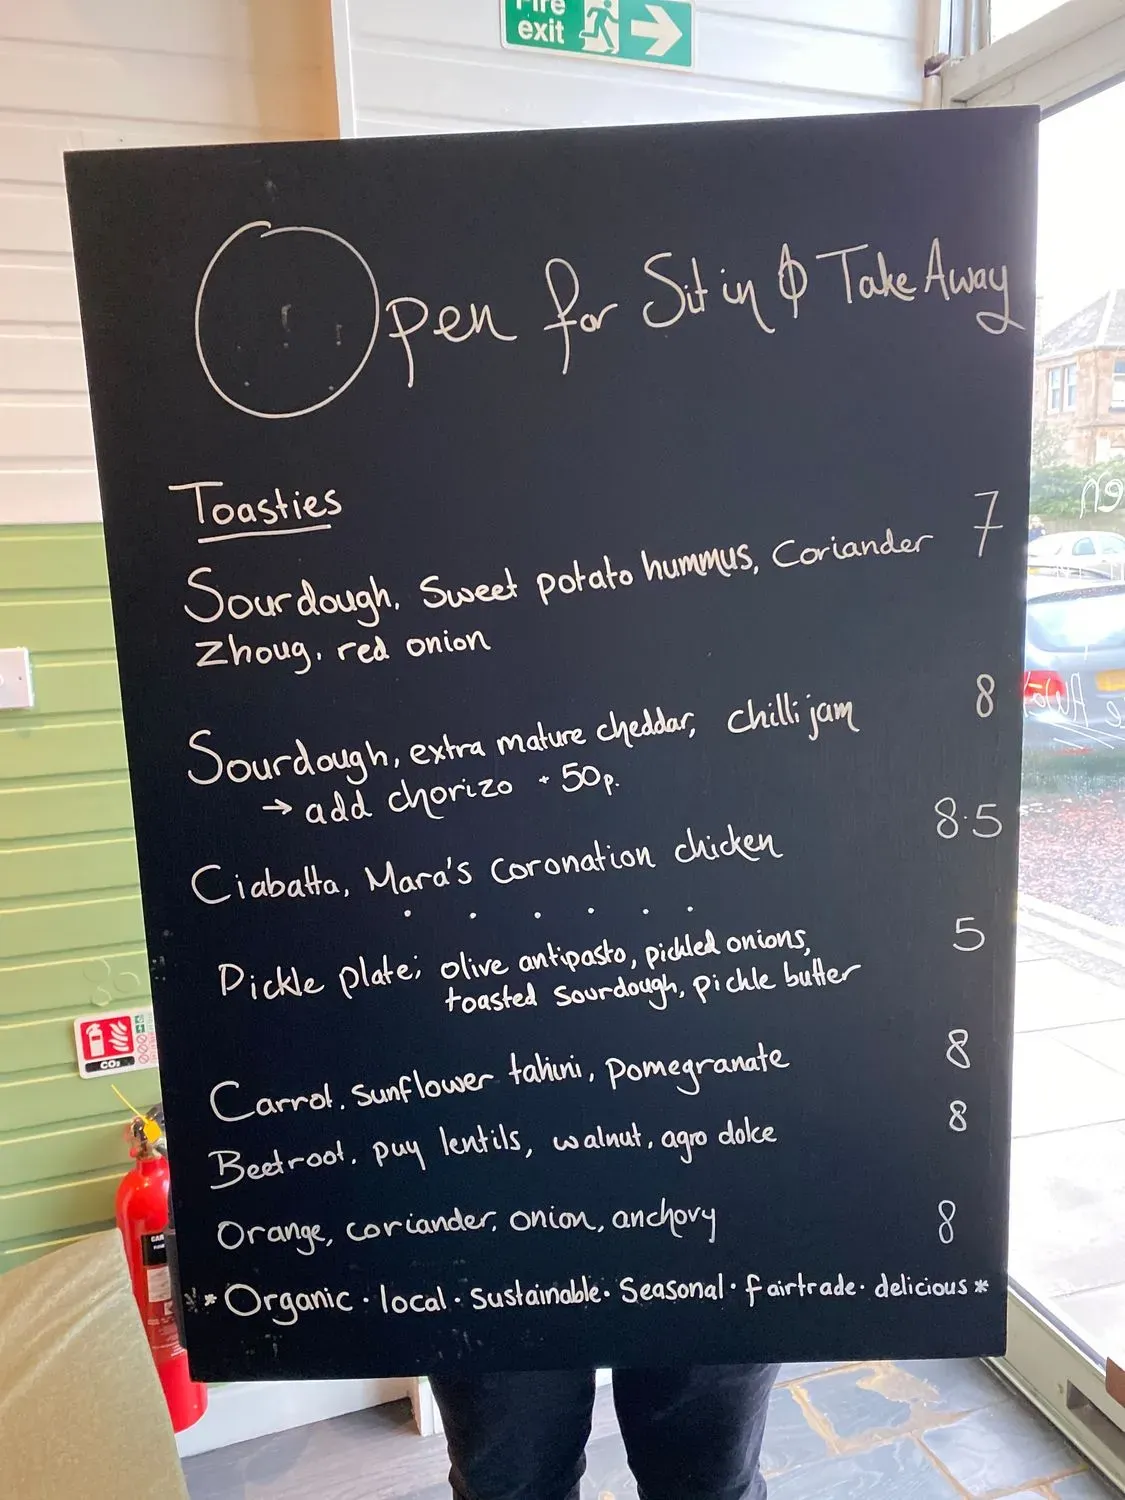 Fire
exit
Open for Sit in & Take Away
Toasties
Sourdough, Sweet potato hummus, Coriander 7
Zhoug, red onion
Sourdough, extra mature cheddar, chilli jam 8
→ add chorizo + 50p.
Ciabatta, Mara's Coronation chicken 8.5
. . . . . .
Pickle plate; olive antipasto, pickled onions, 5
toasted sourdough, pickle butter
Carrot, sunflower tahini, pomegranate 8
Beetroot, puy lentils, walnut, agro dolce 8
Orange, coriander, onion, anchovy 8
**Organic · local · sustainable · Seasonal · fairtrade · delicious*
CO₂